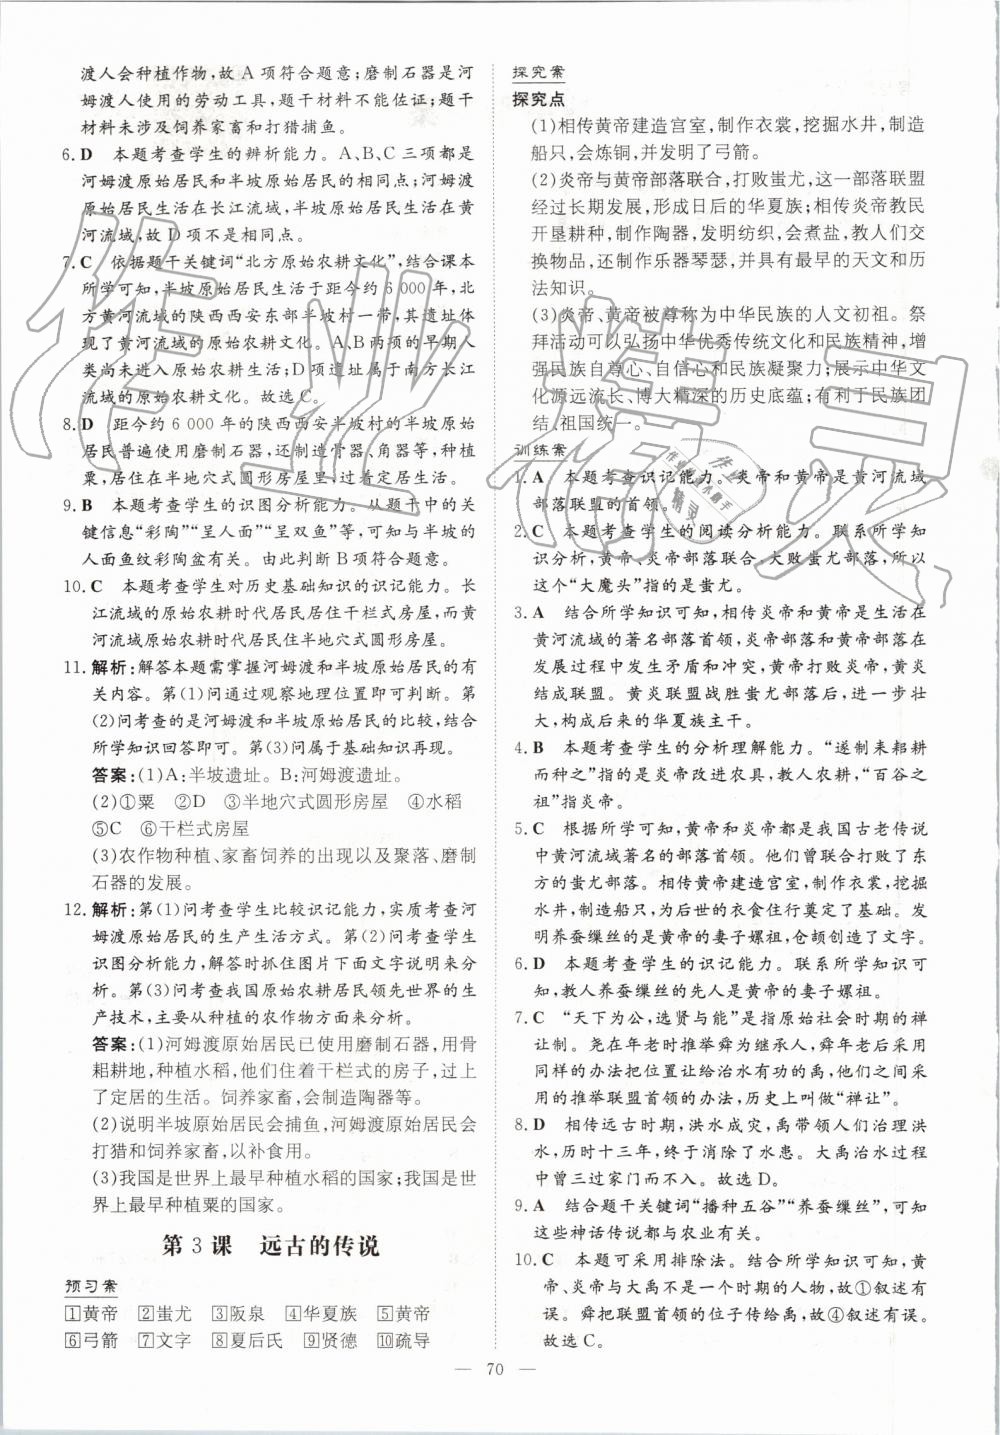 渡人会种植作物,故 A 项符合题意;磨制石器是河
姆渡人使用的劳动工具,题干材料不能佐证;题干
材料未涉及饲养家畜和打猎捕鱼。
6. D 本题考查学生的辨析能力。A、B、C 三项都是
河姆渡原始居民和半坡原始居民的相同点;河姆渡
原始居民生活在长江流域,半坡原始居民生活在黄
河流域,故 D 项不是相同点。
7. C 依据题干关键词“北方原始农耕文化”,结合课本
所学可知,半坡原始居民生活于距今约 6 000 年,北
方黄河流域的陕西西安东部半坡村一带,其遗址体
现了黄河流域的原始农耕文化。A、B 两项的早期人
类尚未进入原始农耕生活;D 项遗址属于南方长江
流域的原始农耕文化。故选 C。
8. D 距今约 6 000 年的陕西西安半坡村的原始居
民普遍使用磨制石器、角器等,饲养家畜,种植
粟,居住在半地穴式圆形房屋里,过着定居生活。
9. B 本题考查学生的识图分析能力。从题干中的关
键信息“彩陶”“呈人面”“呈双鱼”等,可知与半坡的
人面鱼纹彩陶盆有关。由此判断 B 项符合题意。
10. C 本题考查学生对历史基础知识的识记能力。长
江流域的原始农耕时代居民居住干栏式房屋,而黄
河流域原始农耕时代居民住半地穴式圆形房屋。
11. 解析:解答本题需掌握河姆渡和半坡原始居民的有
关内容。第(1)问通过观察地理位置即可判断。第
(2)问考查的是河姆渡和半坡原始居民的比较,结合
所学知识回答即可。第(3)问属于基础知识再现。
答案:(1)A:半坡遗址。B:河姆渡遗址。
(2)①粟 ②D ③半地穴式圆形房屋 ④水稻
⑤C ⑥干栏式房屋
(3)农作物种植、家畜饲养的出现以及聚落、磨制
石器的发展。
12. 解析:第(1)问考查学生比较识记能力,实质考查河
姆渡原始居民的生产生活方式。第(2)问考查学生
识图分析能力,解答时抓住图片下面文字说明来分
析。第(3)问考查我国原始农耕居民领先世界的生
产技术,主要从种植的农作物方面来分析。
答案:(1)河姆渡原始居民已使用磨制石器,用骨
耜耕地,种植水稻,他们住着干栏式的房子,过
了定居的生活。饲养家畜,会制造陶器等。
(2)说明半坡原始居民会捕鱼,河姆渡原始居民会
打猎和饲养家畜,以补食用。
(3)我国是世界上最早种植水稻的国家;我国是世
界上最早种植粟的国家。
第 3 课 远古的传说
预习案
1黄帝 2蚩尤 3阪泉 4华夏族 5黄帝
6弓箭 7文字 8夏后氏 9贤德 10疏导
探究案
探究点
(1)相传黄帝建造宫室,制作衣裳,挖掘水井,制造
船只,会炼铜,并发明了弓箭。
(2)炎帝与黄帝部落联合,打败蚩尤,这一部落联盟
经过长期发展,形成日后的华夏族;相传炎帝教民
开垦耕种,制作陶器,发明纺织,会煮盐,教人们交
换物品,还制作乐器琴瑟,并具有最早的天文和历
法知识。
(3)炎帝、黄帝被尊称为中华民族的人文初祖。祭
拜活动可以弘扬中华优秀传统文化和民族精神,增
强民族自尊心、自信心和民族凝聚力;展示中华文
化源远流长、博大精深的历史底蕴;有利于民族团
结、祖国统一。
训练案
1. A 本题考查识记能力。炎帝和黄帝是黄河流域
部落联盟的首领。
2. C 本题考查学生的阅读分析能力。联系所学知
识分析,黄帝、炎帝部落联合,大败蚩尤部落,所以
这个“大魔头”指的是蚩尤。
3. A 结合所学知识可知,相传炎帝和黄帝是生活在
黄河流域的著名部落首领,炎帝部落和黄帝部落在
发展过程中发生矛盾和冲突,黄帝打败炎帝,黄炎
结成联盟。黄炎联盟战胜蚩尤部落后,进一步壮
大,构成后来的华夏族主干。
4. B 本题考查学生的分析理解能力。“遂制耒耜耕
而种之”指的是炎帝改进农具,教人农耕,“百谷之
祖”指炎帝。
5. C 根据所学可知,黄帝和炎帝都是我国古老传说
中黄河流域著名的部落首领。他们曾联合打败了东
方的蚩尤部落。相传黄帝建造宫室,制作衣裳,挖掘
水井,制造船只,为后世的衣食住行奠定了基础。发
明养蚕缫丝的是黄帝的妻子嫘祖,仓颉创造了文字。
6. D 本题考查学生的识记能力。联系所学知识可
知,教人养蚕缫丝的先人是黄帝的妻子嫘祖。
7. C “天下为公,选贤与能”是指原始社会时期的禅
让制。尧在年老时推举舜为继承人,舜年老后采用
同样的办法把位置让给治水有功的禹,他们之间采用
的推举联盟首领的办法,历史上叫做“禅让”。
8. D 相传远古时期,洪水成灾,禹带领人们治理洪
水,历时十三年,终于消除了水患。大禹治水过程中
曾三过家门而不入。故选 D。
9. A 结合题干关键词“播种五谷”“养蚕缫丝”,可知
这些神话传说都与农业有关。
10. C 本题可采用排除法。结合所学知识可知,黄
帝、炎帝与大禹不是一个时期的人物,故①叙述有
误。舜把联盟首领的位子传给禹,故④叙述有误。
故选 C。
— 70 —